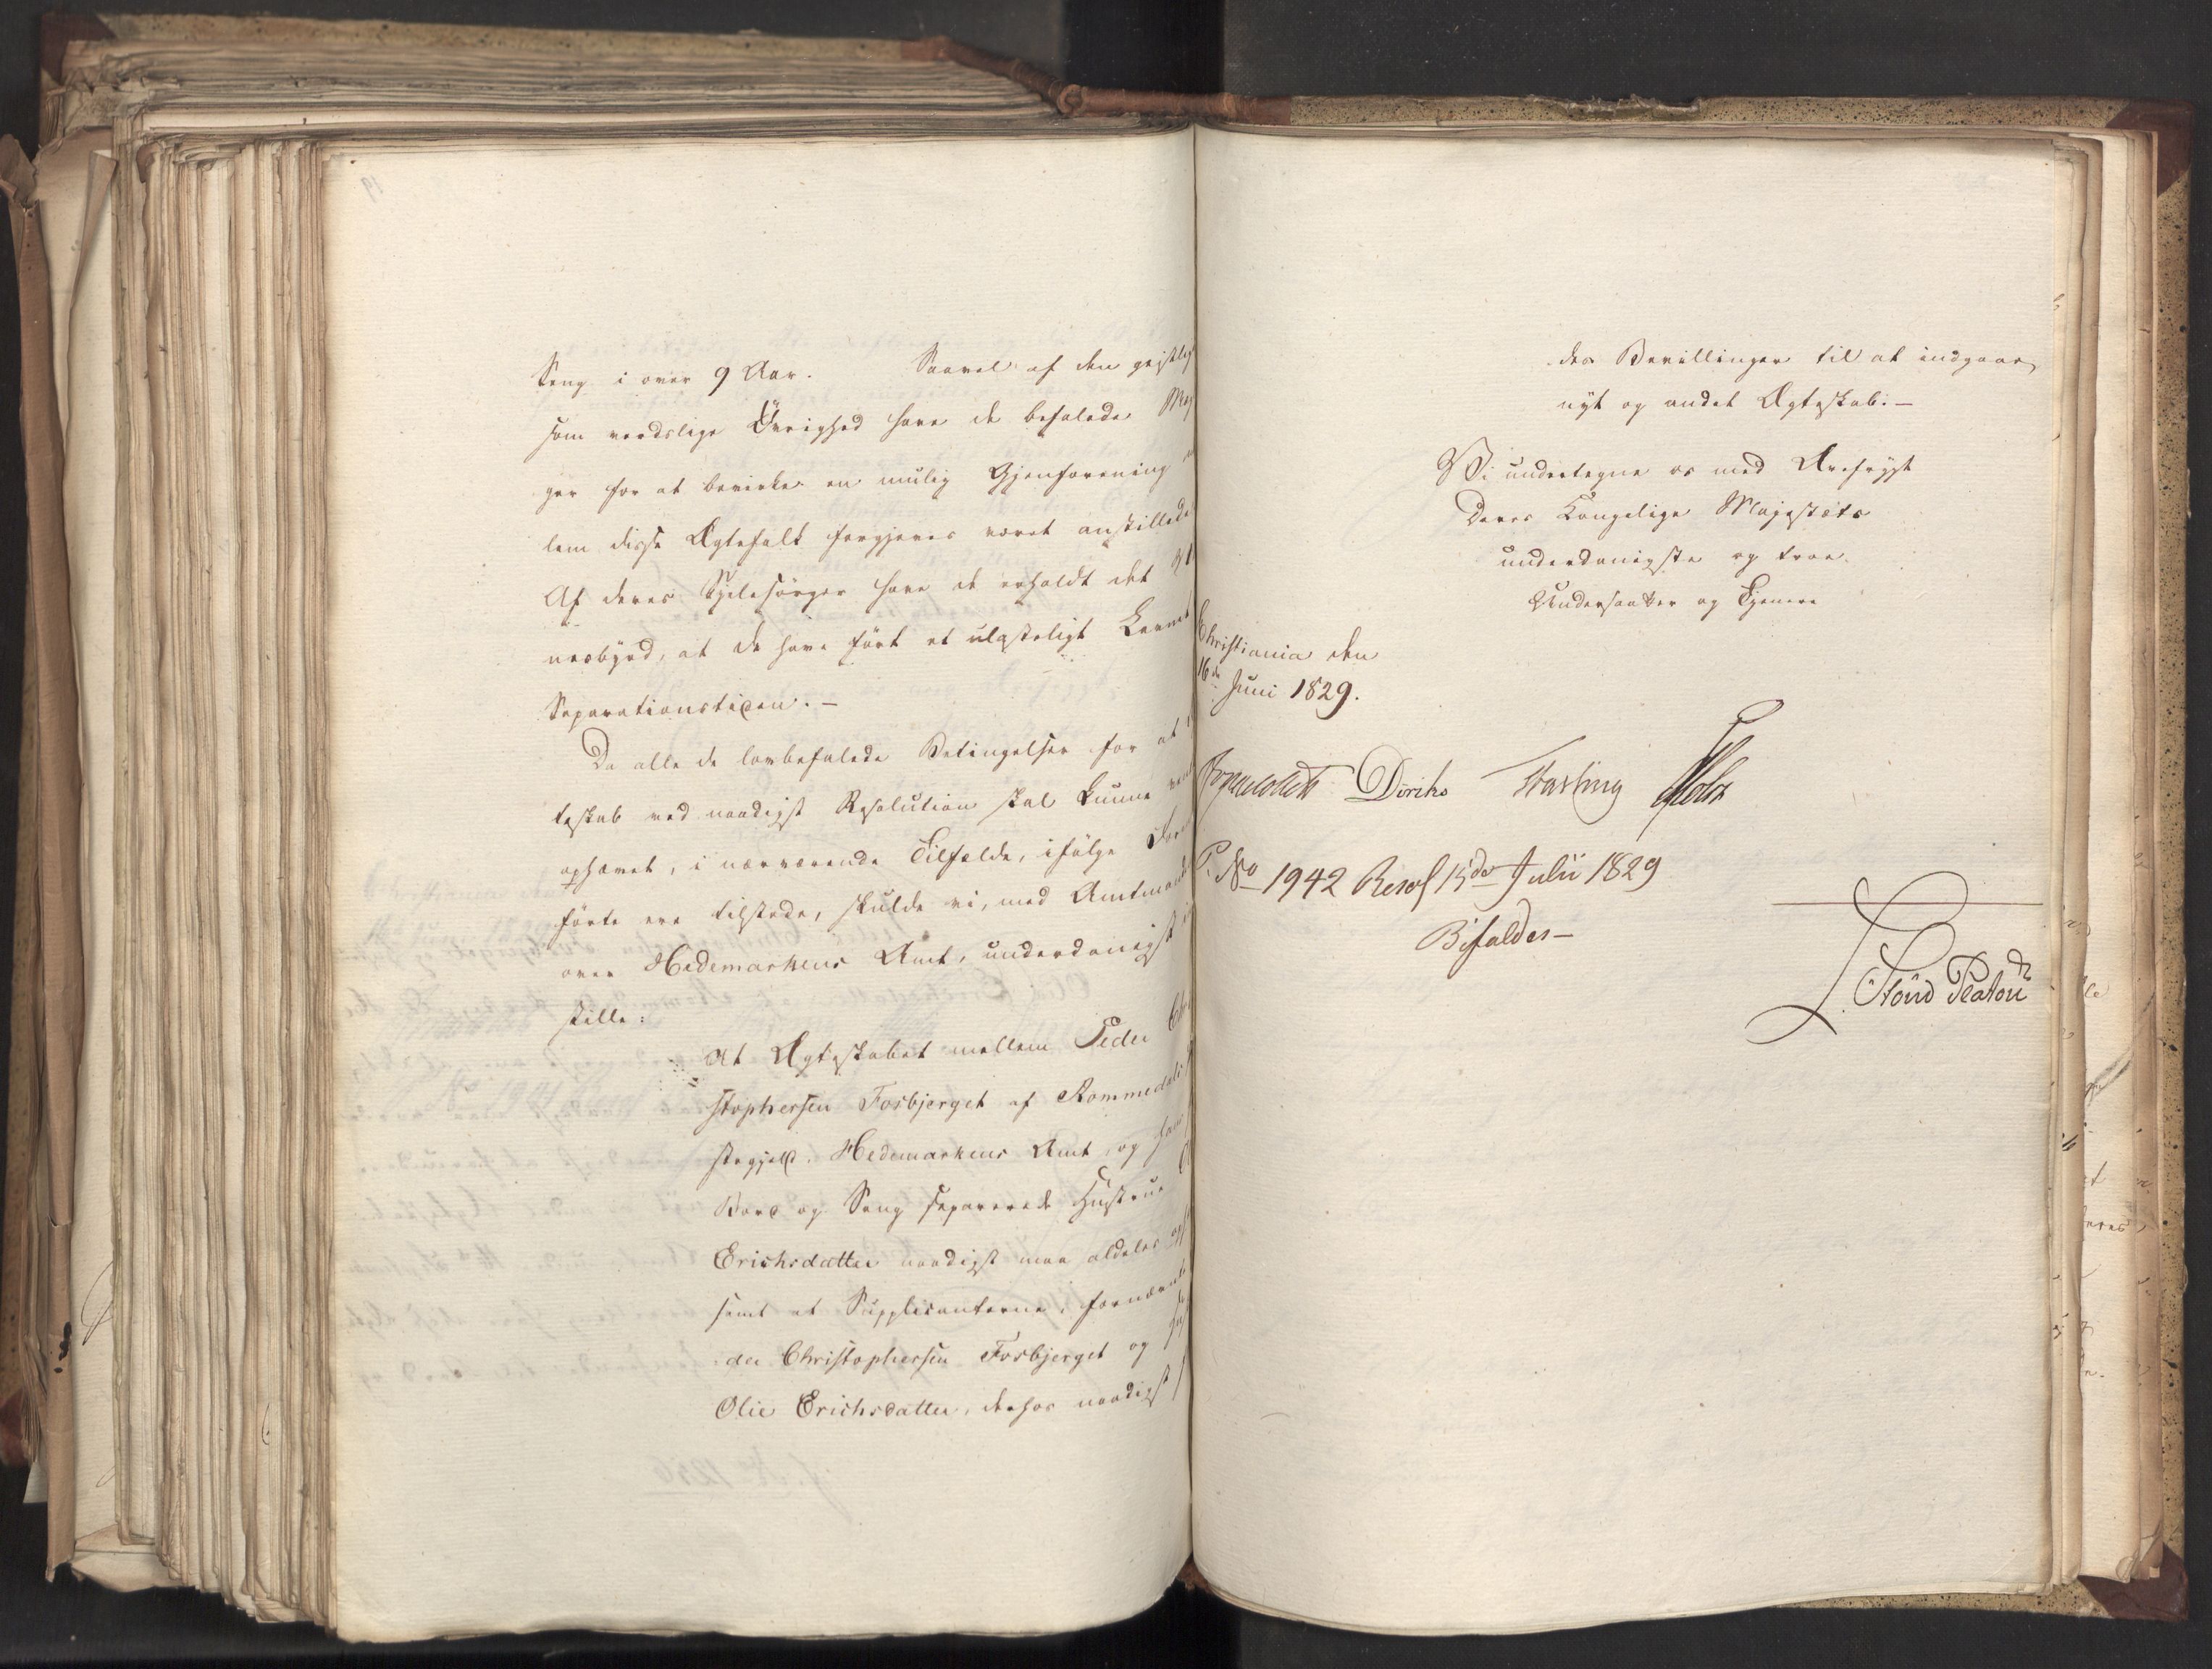 Seng i over 9 Aar. Saavel af den geistlige
som verdslige Øvrighed have de befalede Mæg
ger for at bevirke en mulig Gjenforening
lem disse Ægtefolk forgjæves været anstillede
Af deres Sjelesørger have de erholdt det
nesbyrd, at de have ført et ulasteligt Levnet
Separationstiden. —
Da alle de lovbefalede Betingelser for at
teskab ved naadigst Resolution skal kunne
ophævet, i nærværende Tilfælde, ifølge
førte ere tilstede, skulde vi, med Amtmand
over Hedemarkens Amt, underdanigst
stille:
At Ægteskabet mellem Peder Chri
stophersen Fosbjerget af Rommedals
stegjeld. Hedemarkens Amt, og han
Bord og Seng separerede Hustrue
Erichsdatter naadigst maa aldeles oph
samt at Supplicanterne, fornævnte
der Christophersen Fosbjerget og
Olie Erichsdatter, derhos naadigst
des Bevillinger til at indgaae
nyt og andet Ægteskab. —
Vi undertegne os med Ærefrygt
Deres Kongelige Majestæts
underdanigste og troe
Undersaatter og Tjenere
Christiania den
16de Juni 1829.
Diriks Fasting Holst
P. No 1942 Resol 15de Julii 1829
Bifaldes —